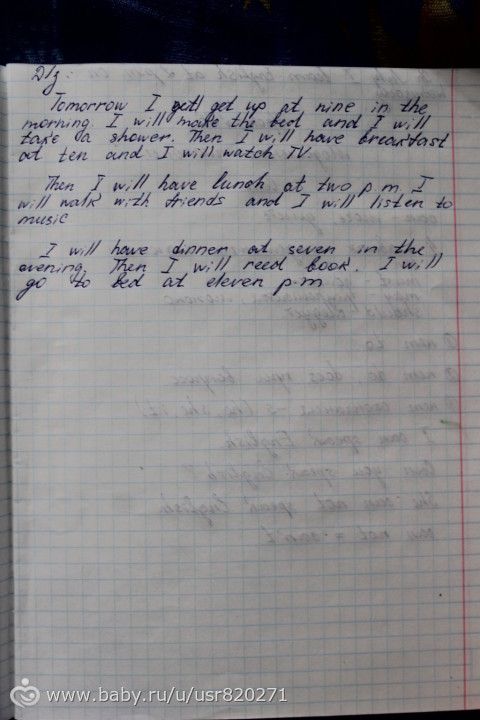 D/z:
Tomorrow I get up at nine in the
morning. I will make the bed and I will
take a shower. Then I will have breakfast
at ten and I will watch TV.
Then I will have lunch at two p.m. I
will walk with friends and I will listen to
music
I will have dinner at seven in the
evening. Then I will reed book. I will
go to bed at eleven p.m
www.baby.ru/u/usr820271